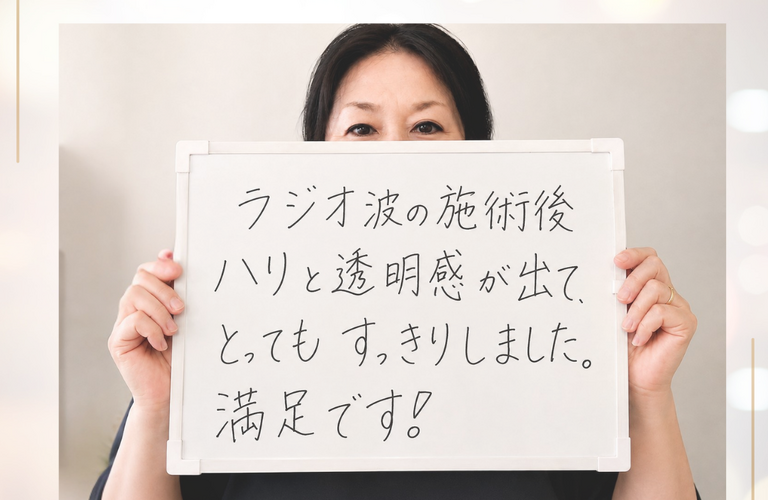 ラジオ波の施術後
ハリと透明感が出て、
とってもすっきりしました。
満足です!